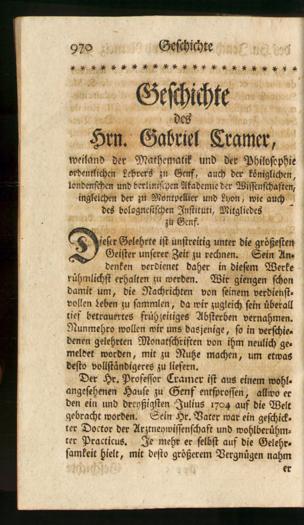 970 Geschichte
* * * * * * * * * * * * * * * * * * * * * * * * * * *
Geschichte
des
Hrn. Gabriel Cramer,
weiland der Mathematik und der Philosophie
ordentlichen Lehrers zu Genf, auch der königlichen,
londenschen und berlinischen Akademie der Wissenschaften,
ingleichen der zu Montpellier und Lyon, wie auch
des bolognesischen Instituti, Mitgliedes
zu Genf.
Dieser Gelehrte ist unstreitig unter die größesten
Geister unserer Zeit zu rechnen. Sein An-
denken verdienet daher in diesem Werke
rühmlichst erhalten zu werden. Wir giengen schon
damit um, die Nachrichten von seinem verdienst-
vollen Leben zu sammlen, da wir zugleich sein überall
tief betrauertes frühzeitiges Absterben vernahmen.
Nunmehro wollen wir uns dasjenige, so in verschie-
denen gelehrten Monatschriften von ihm neulich ge-
meldet worden, mit zu Nutze machen, um etwas
desto vollständigeres zu liefern.
Der Hr. Professor Cramer ist aus einem wohl-
angesehenen Hause zu Genf entsprossen, allwo er
den ein und dreyßigsten Julius 1704 auf die Welt
gebracht worden. Sein Hr. Vater war ein geschick-
ter Doctor der Arzneywissenschaft und wohlberühm-
ter Practicus. Je mehr er selbst auf die Gelehr-
samkeit hielt, mit desto größerem Vergnügen nahm
er